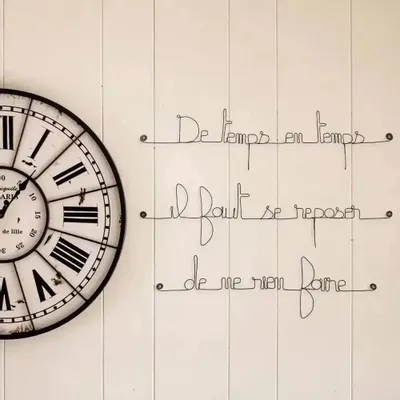 De temps en temps
il faut se reposer
de ne rien faire
PARIS
de lille
10
15
20
25
30